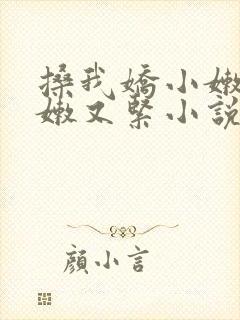 搡我嬌小嫩
嫩又緊小說
顏小言